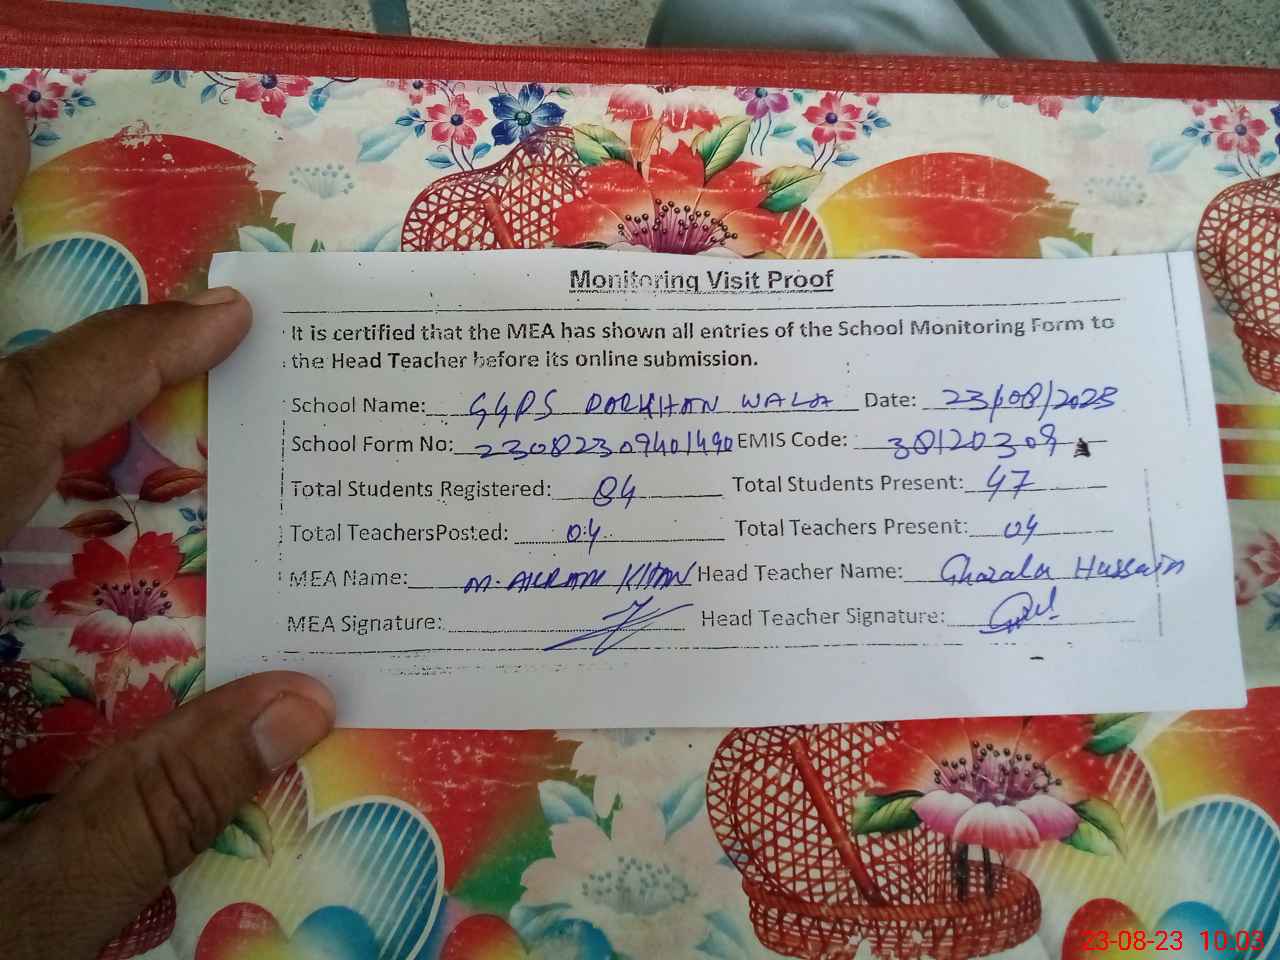 Monitoring Visit Proof
It is certified that the MEA has shown all entries of the School Monitoring Form to
the Head Teacher before its online submission.
School Name: GGPS DARKHAN WALA Date: 23/08/2023
School Form No: 23082309401490 EMIS Code: 38120309
Total Students Registered: 84 Total Students Present: 47
Total TeachersPosted: 04 Total Teachers Present: 04
MEA Name: M. AKRAM KHAN Head Teacher Name: Ghazala Hussain
MEA Signature: Head Teacher Signature:
23-08-23 10:03